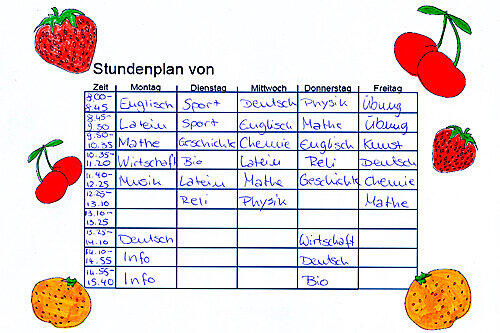 Stundenplan von
Zeit Montag Dienstag Mittwoch Donnerstag Freitag
8.00-8.45 Englisch Sport Deutsch Physik Übung
8.45-9.30 Latein Sport Englisch Mathe Übung
9.50-10.35 Mathe Geschichte Chemie Englisch Kunst
10.35-11.20 Wirtschaft Bio Latein Reli Deutsch
11.40-12.25 Musik Latein Mathe Geschichte Chemie
12.25-13.10 Reli Physik Mathe
13.10-13.25
13.25-14.10 Deutsch Wirtschaft
14.10-14.55 Info Deutsch
14.55-15.40 Info Bio